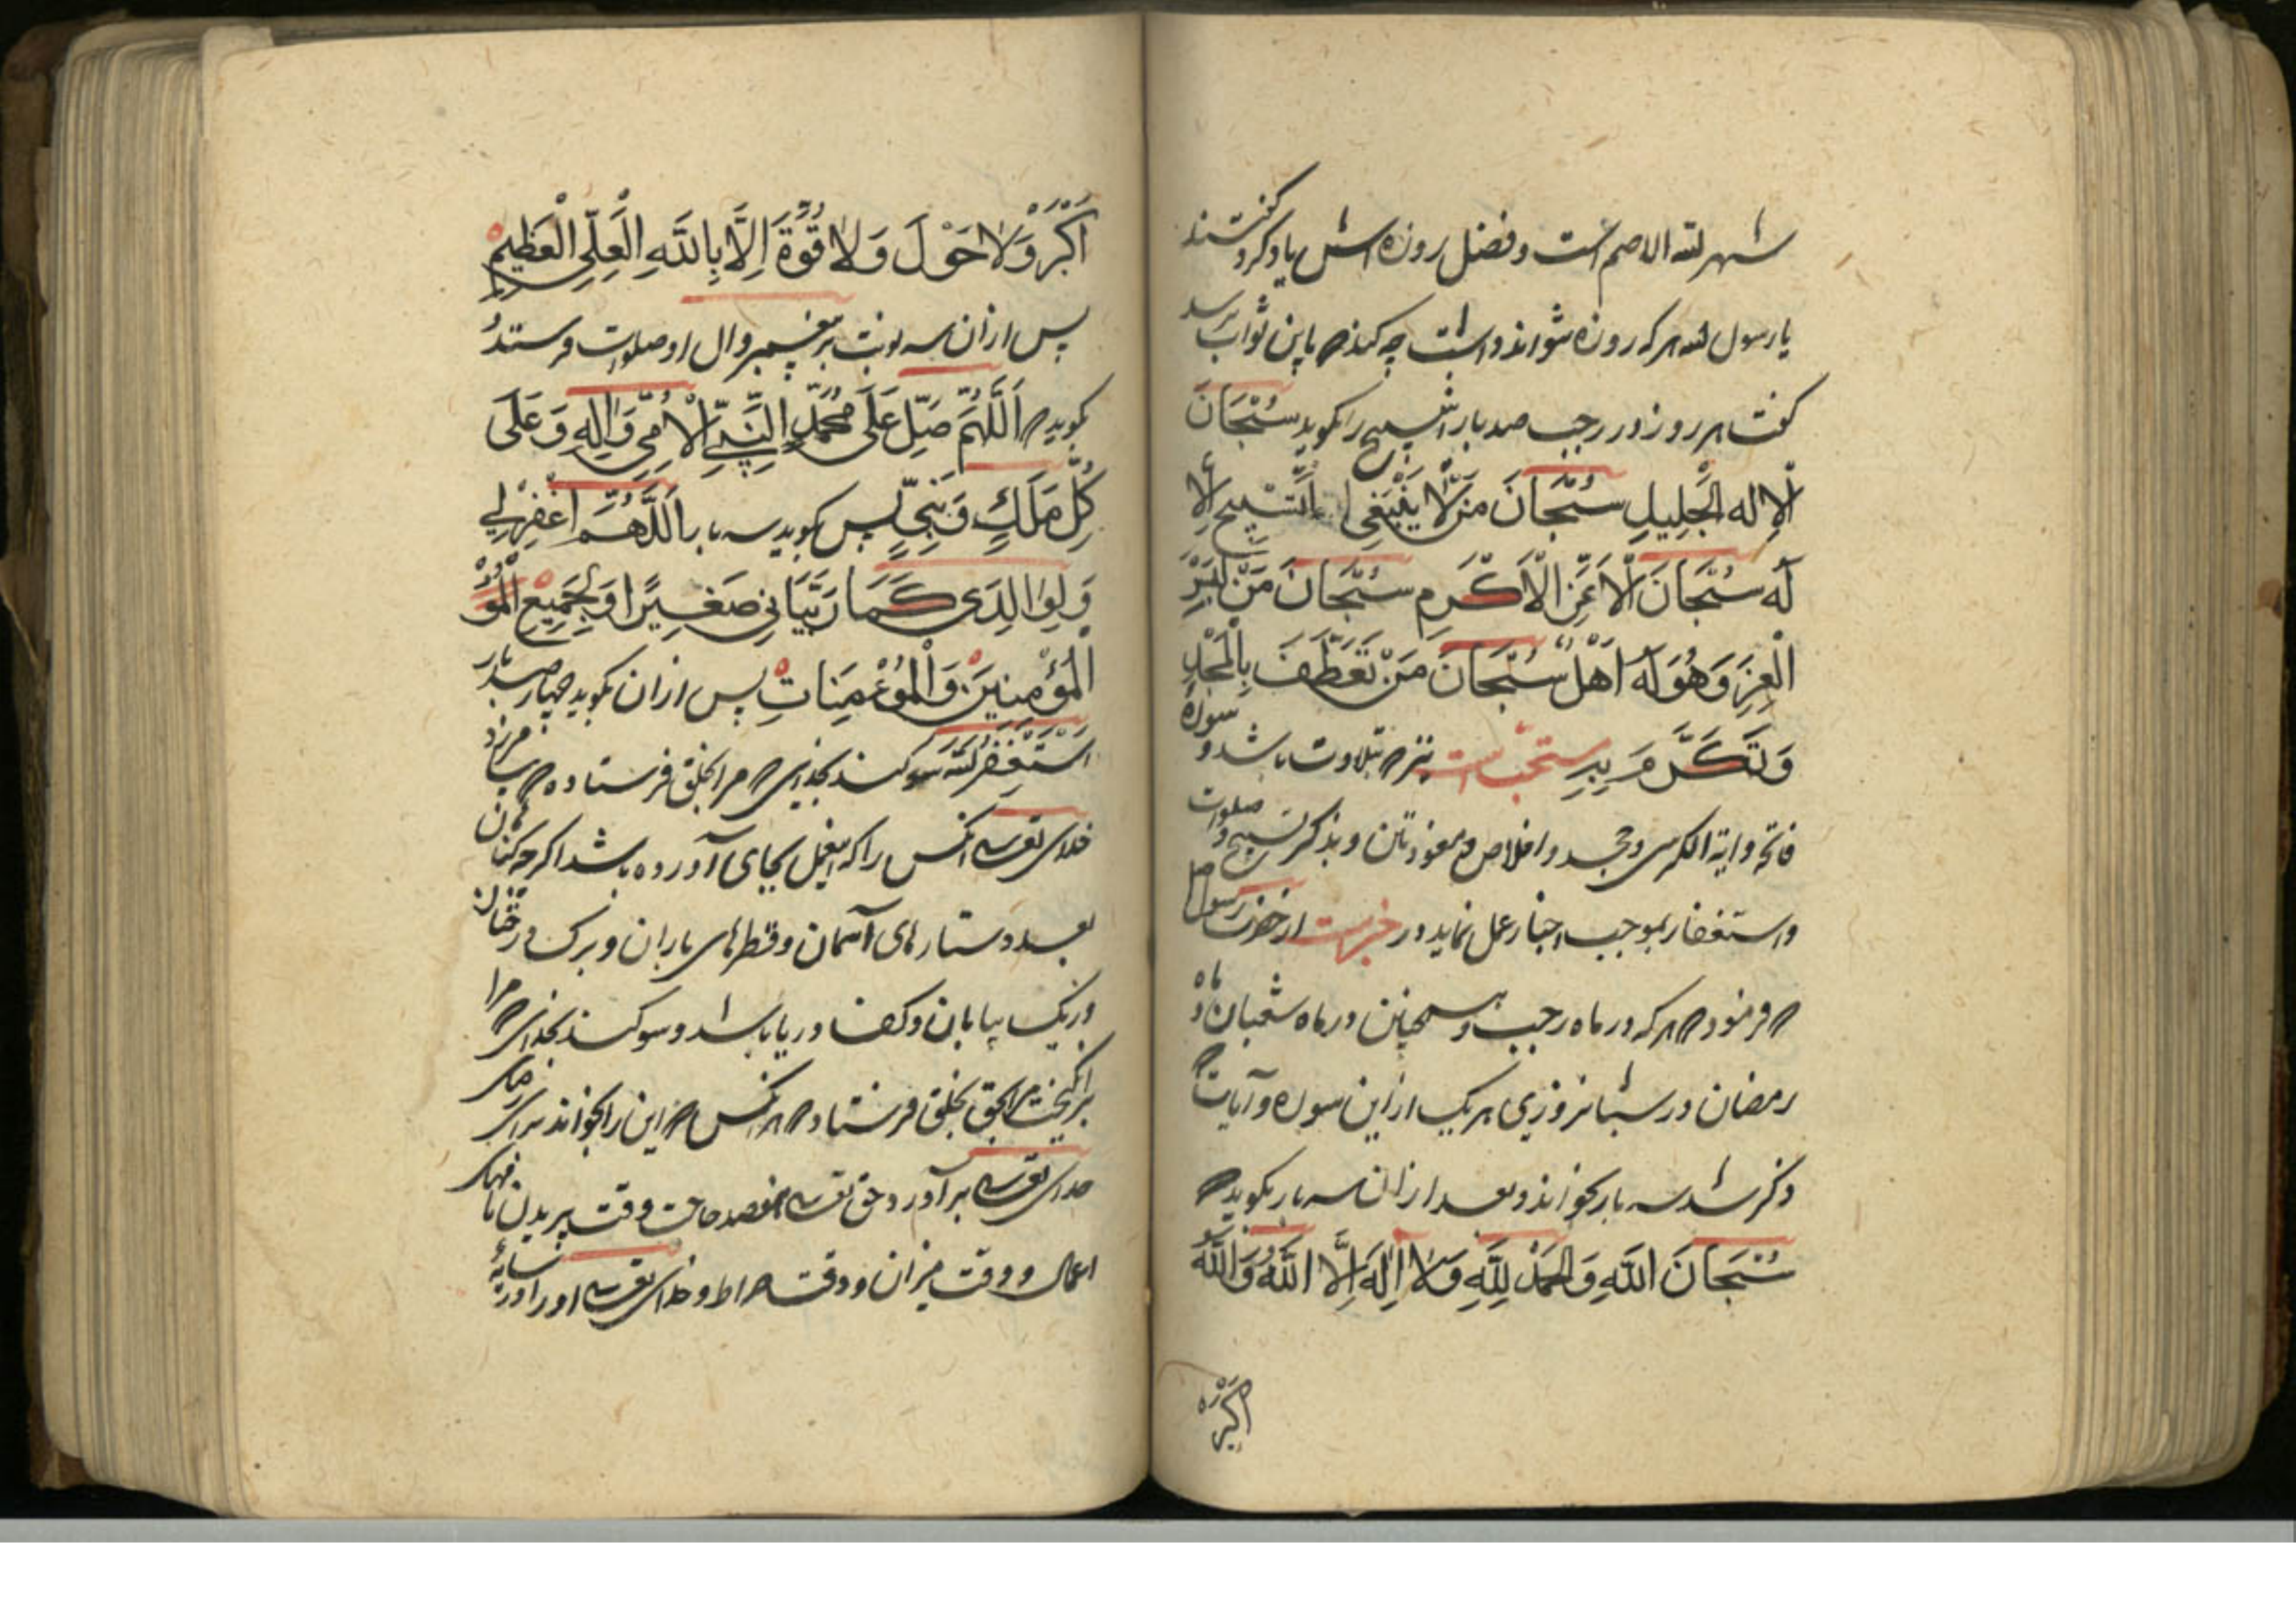 شهر الله الاصم است و فضل روزه اش یاد کرد گفتند
یا رسول الله هر که روزه نتواند داشت چه کند که باین ثواب برسد
گفت هر روز در رجب صد بار این تسبیح را بگوید سُبْحَانَ
الْإِلهِ الْجَلِيلِ سُبْحَانَ مَنْ لَا يَنْبَغِي التَّسْبِيحُ إِلَّا
لَهُ سُبْحَانَ الْأَعَزِّ الْأَكْرَمِ سُبْحَانَ مَنْ لَبِسَ
الْعِزَّ وَهُوَ لَهُ أَهْلٌ سُبْحَانَ مَنْ تَعَطَّفَ بِالْمَجْدِ
وَتَكَرَّمَ بِهِ مستحب است نیز که بتلاوت باشد و سوره
فاتحه و ایة الکرسی و جحد و اخلاص و معوذتین و بذکر تسبیح و صلوات
و استغفار بموجب اخبار عمل نماید در خبر است از حضرت رسول
که فرمود که هر که در ماه رجب و همچنین در ماه شعبان و ماه
رمضان در شبانروزی هر یک از این سوره و آیات که
ذکر شد سه بار بخواند و بعد از ان سه بار بگوید که
سُبْحَانَ اللَّهِ وَالْحَمْدُ لِلَّهِ وَلَا إِلَهَ إِلَّا اللَّهُ وَاللَّهُ
اکبر
أَكْبَرُ وَلَا حَوْلَ وَلَا قُوَّةَ إِلَّا بِاللَّهِ الْعَلِيِّ الْعَظِيمِ
پس از ان سه نوبت بر پیغمبر و ال او صلوات فرستد
بگوید که اَللَّهُمَّ صَلِّ عَلَى مُحَمَّدٍ النَّبِيِّ الْأُمِّيِّ وَآلِهِ وَعَلَى
كُلِّ مَلَكٍ وَنَبِيٍّ پس بگوید سه بار اَللَّهُمَّ اغْفِرْ لِي
وَلِوَالِدَيَّ كَمَا رَبَّيَانِي صَغِيرًا وَلِجَمِيعِ الْمُؤْ
الْمُؤْمِنِينَ وَالْمُؤْمِنَاتِ پس از ان بگوید چهار صد بار
اَسْتَغْفِرُ اللَّهَ سوکند بخدای که مرا بخلق فرستاده که بیامرزد
خدای تعالی آنکس را که این عمل بجای آورده باشد اکرچه کناهان
بعدد ستارهای آسمان و قطرهای باران و برک درختان
و ریک بیابان و کف دریا باشد و سوکند بخدای که مرا
برانکیخت بحق بخلق فرستاد که هر آنکس که این را بخواند برای رضای
خدای تعالی بر آورد حق تعالی هفصد حاجت وقت پریدن نامهای
اعمال و وقت میزان و وقت صراط و خدای تعالی او را در سایه